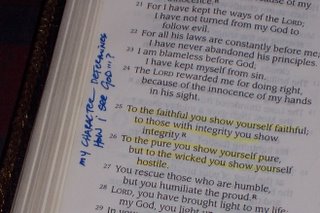 21 For I have kept the ways of the LORD;
I have not turned from my God to
follow evil.
22 For all his laws are constantly before me;
I have never abandoned his principles.
23 I am blameless before God;
I have kept myself from sin.
24 The LORD rewarded me for doing right,
because of the innocence of my hands
in his sight.
25 To the faithful you show yourself faithful;
to those with integrity you show
integrity.R
26 To the pure you show yourself pure,
but to the wicked you show yourself
hostile.
27 You rescue those who are humble,
but you humiliate the proud.R
28 LORD, you have brought light to my life
my God, you light
my CHARACTER DETERMINES
HOW i see GOD...?